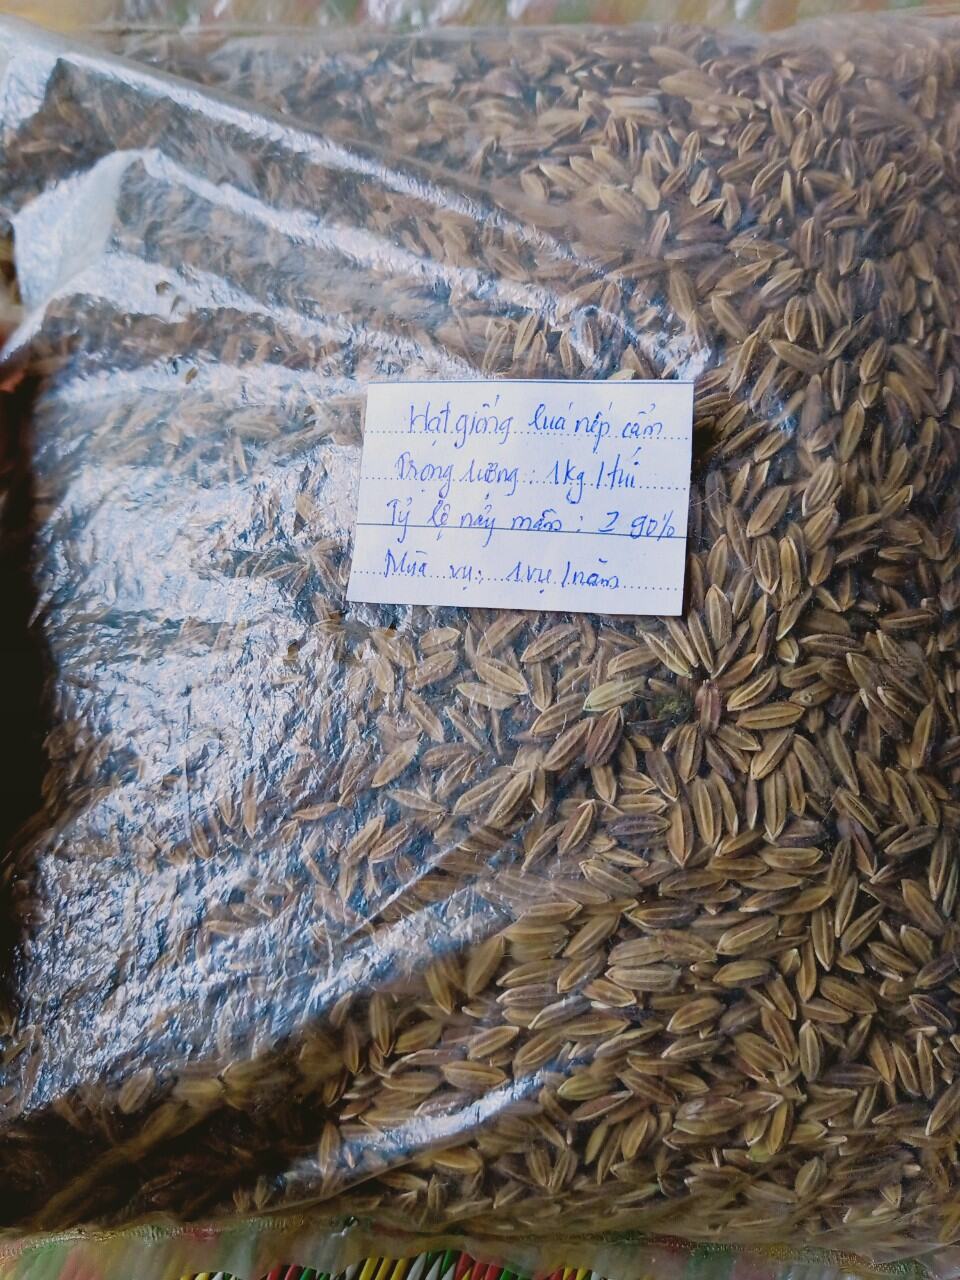 Hạt giống luá nếp cẩm
Trọng lượng : 1kg / túi
Tỷ lệ nảy mầm : ≥ 90%
Mùa vụ : 1 vụ / năm